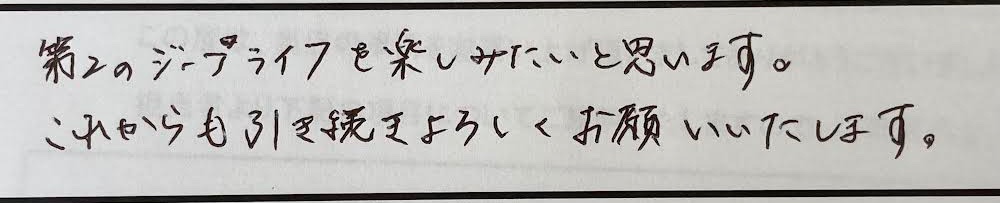 第2のジープライフを楽しみたいと思います。
これからも引き続きよろしくお願いいたします。